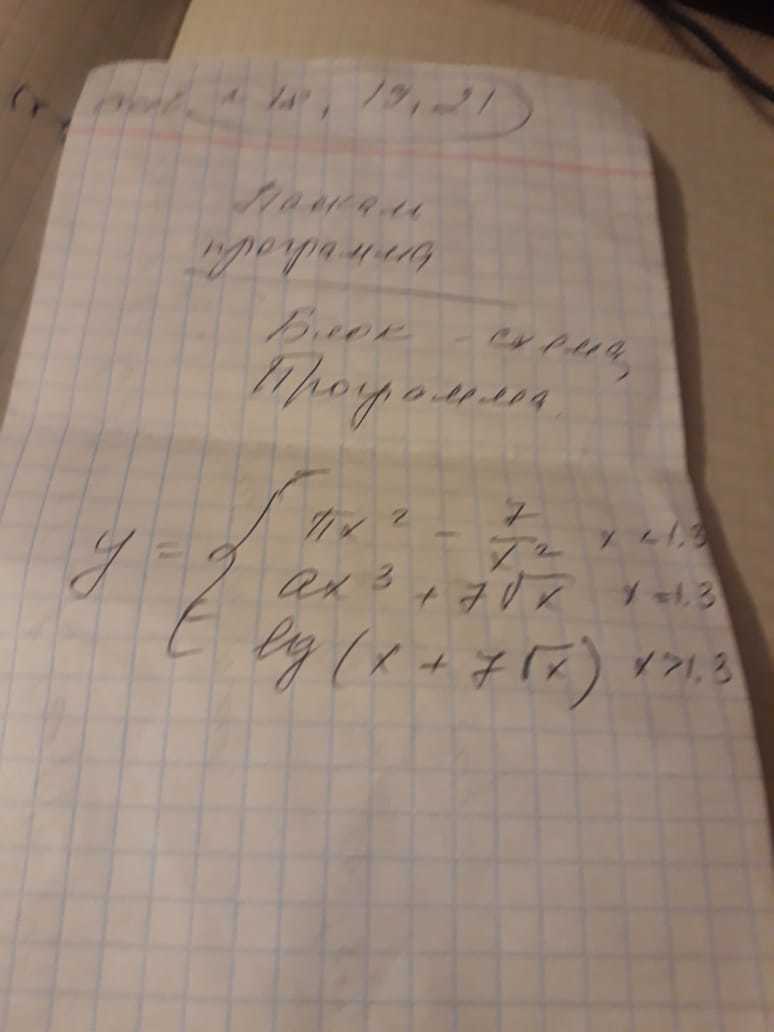 18, 19, 21)
Паскаль
программа
Блок - схема,
Программа.
y = { πx² - 7/x² x < 1.3
ax³ + 7√x x = 1.3
lg (x + 7√x) x > 1.3